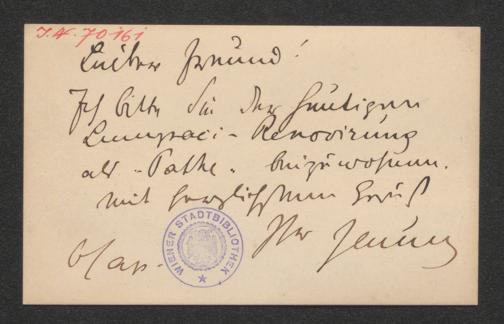 I.N. 70161
Lieber Freund!
Ich bitte Sie der heutigen
Lumpaci-Renovirung
als "Pathe" beizuwohnen.
mit herzlichstem Gruß
Ihr
WIENER STADTBIBLIOTHEK